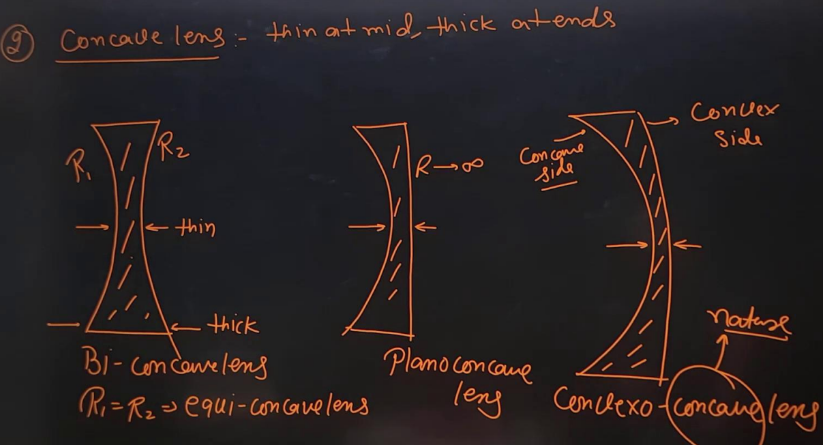 ② Concave lens :- thin at mid, thick at ends
R₁
R₂
thin
thick
Bi-concave lens
R₁ = R₂ ⇒ equi-concave lens
R → ∞
Plano concave
lens
Concave
side
Convex
side
nature
Convexo-concave lens